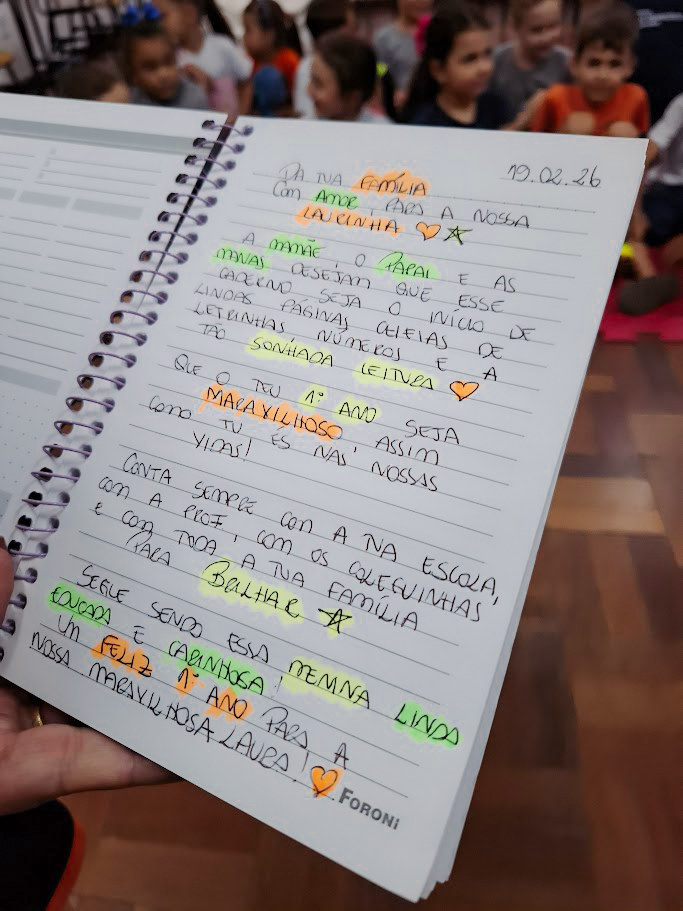 19.02.26
DA TUA FAMÍLIA
COM AMOR, PARA A NOSSA
LAURINHA
A MAMÃE, O PAPAI E AS
MANAS DESEJAM QUE ESSE
CADERNO SEJA O INÍCIO DE
LINDAS PÁGINAS CHEIAS DE
LETRINHAS NÚMEROS E A
TÃO SONHADA LEITURA
QUE O TEU 1º ANO SEJA
MARAVILHOSO ASSIM
COMO TU ÉS NAS NOSSAS
VIDAS!
CONTA SEMPRE COM A TUA ESCOLA,
COM A PROF, COM OS COLEGUINHAS
E COM TODA A TUA FAMÍLIA
PARA BRILHAR
SEGUE SENDO ESSA MENINA LINDA
EDUCADA E CARINHOSA!
UM FELIZ 1º ANO PARA A
NOSSA MARAVILHOSA LAURA!
FORONI